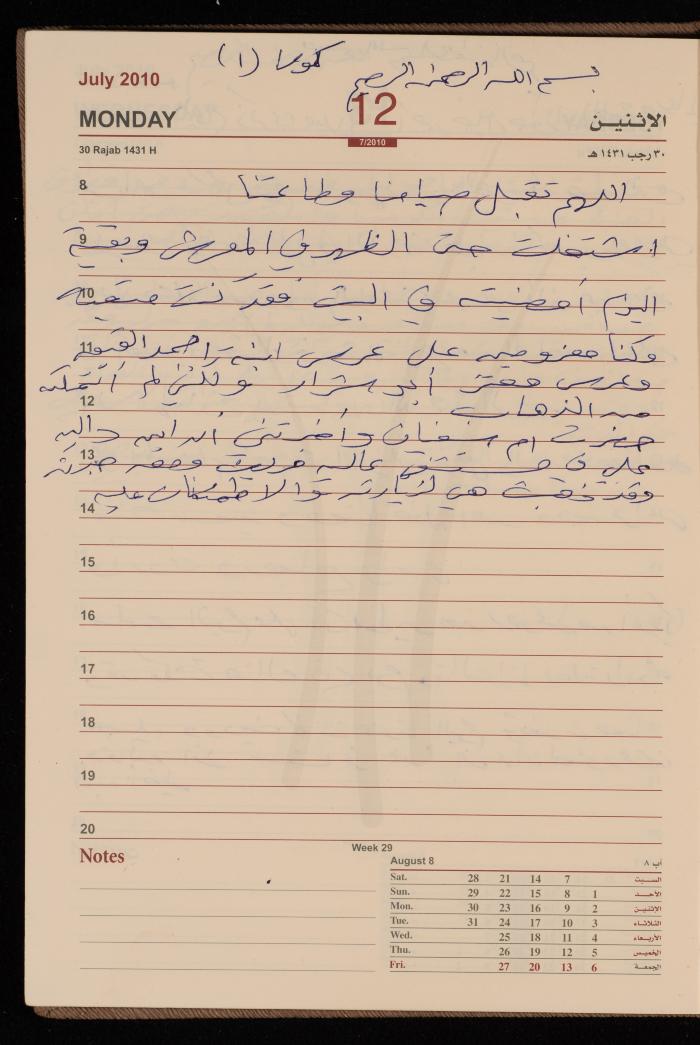 كموا (١)
بسم الله الرحمن الرحيم
July 2010
12
MONDAY
الإثنين
7/2010
30 Rajab 1431 H
٣٠ رجب ١٤٣١ هـ
8
اللهم تقبل صيامنا وطاعتنا
9
اشتغلت حتى الظهر في المعرض وبقية
10
اليوم أمضيته في البيت فقد كنت متعبة
11
وكنا معزومين على عرس ابنة احمد
وعرس معتز أبو شرار ولكن لم أتمكن
12
من الذهاب
حضرت ام سفيان وأخبرتني أن ابن
13
علي في مستشفى عالية
وقد ذهبت هي لزيارته والاطمئنان عليه
14
15
16
17
18
19
20
Notes
Week 29
August 8
آب ٨
Sat. 28 21 14 7 السبت
Sun. 29 22 15 8 1 الأحد
Mon. 30 23 16 9 2 الإثنين
Tue. 31 24 17 10 3 الثلاثاء
Wed. 25 18 11 4 الأربعاء
Thu. 26 19 12 5 الخميس
Fri. 27 20 13 6 الجمعة